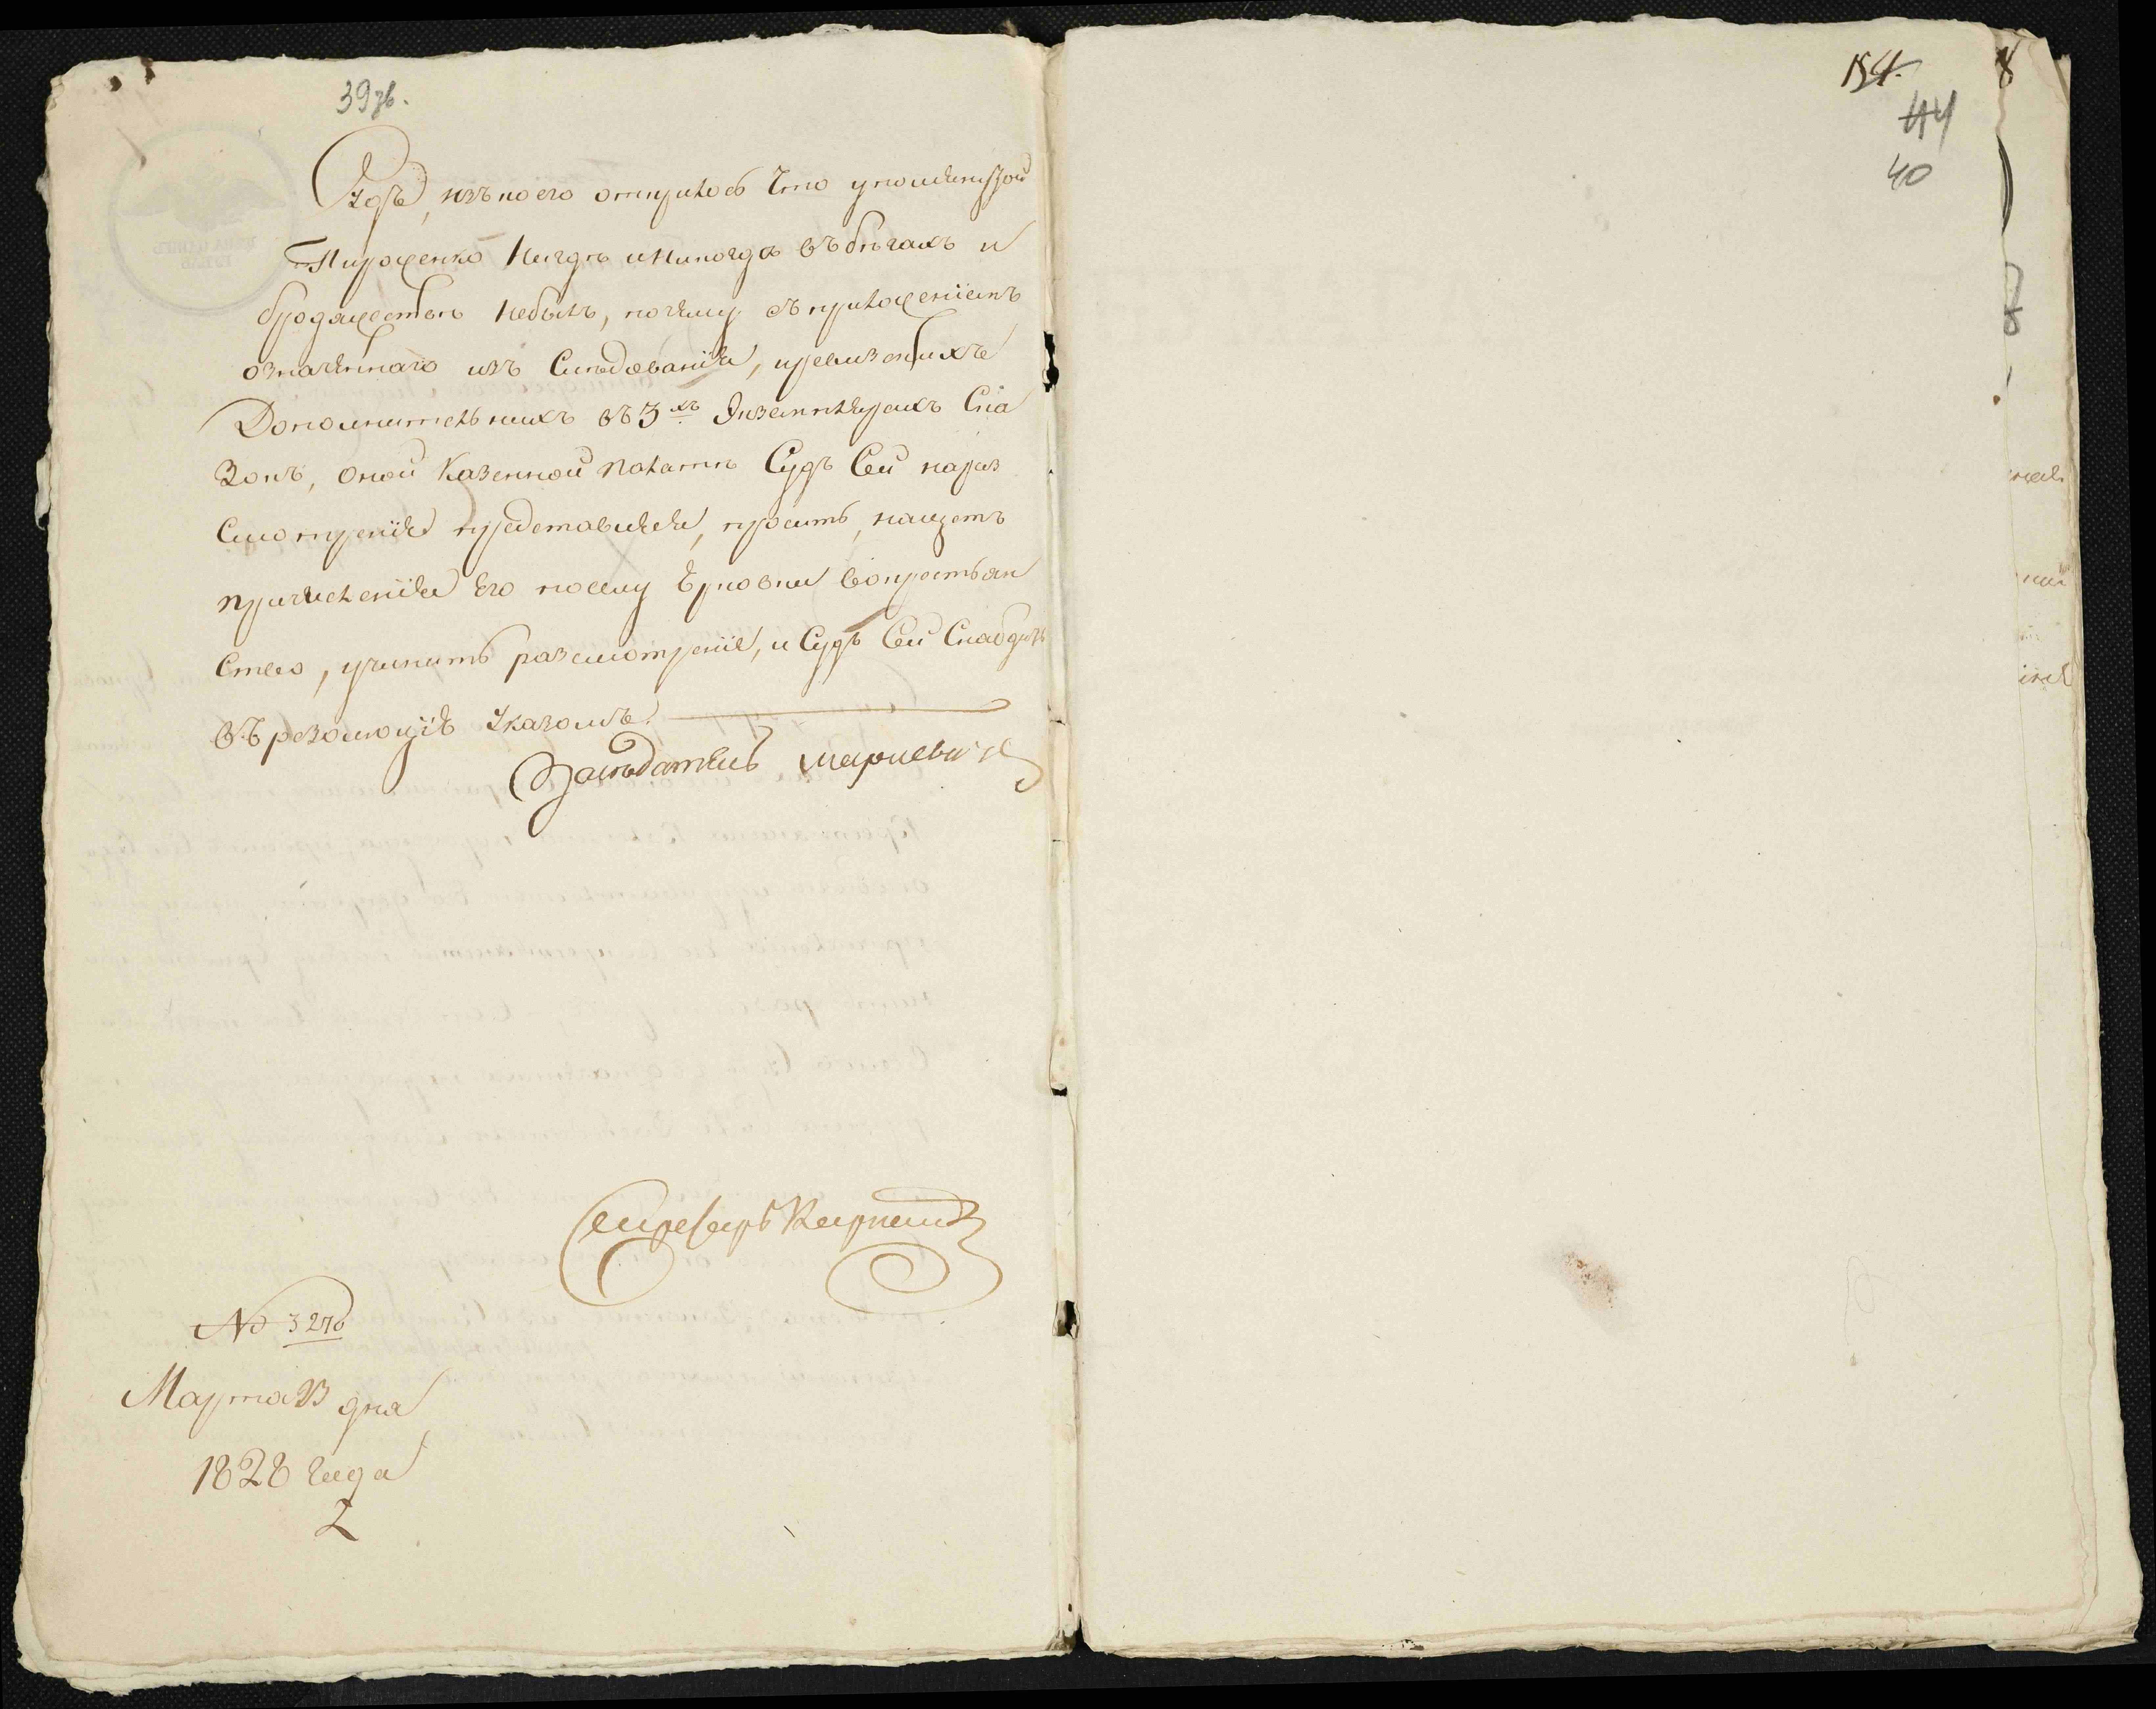 39 зв.
ходѣ, изъ коего открилось что упомянутой
Пироженко Нигде и Никогда въ бѣгахъ и
бродяжествѣ небылъ, почему съ приложеніемъ
означеннаго изъ Слѣдованія, и ревизскихъ
Дополнительнихъ въ 3хъ Экземплярахъ Ска
Зокъ, оной Казенной палатѣ Судъ Сей на раз
Смотреніе представляя, проситъ, на щетъ
причисленія Его по селу въ Крестьян
Ство, учинить разсмотреніе, и Судъ Сей Снабдить
въ резолюціѣ Указомъ.
Засѣдатель
Секретарь
№ 3276
Марта 13 дня
1828 года
154.
44
40